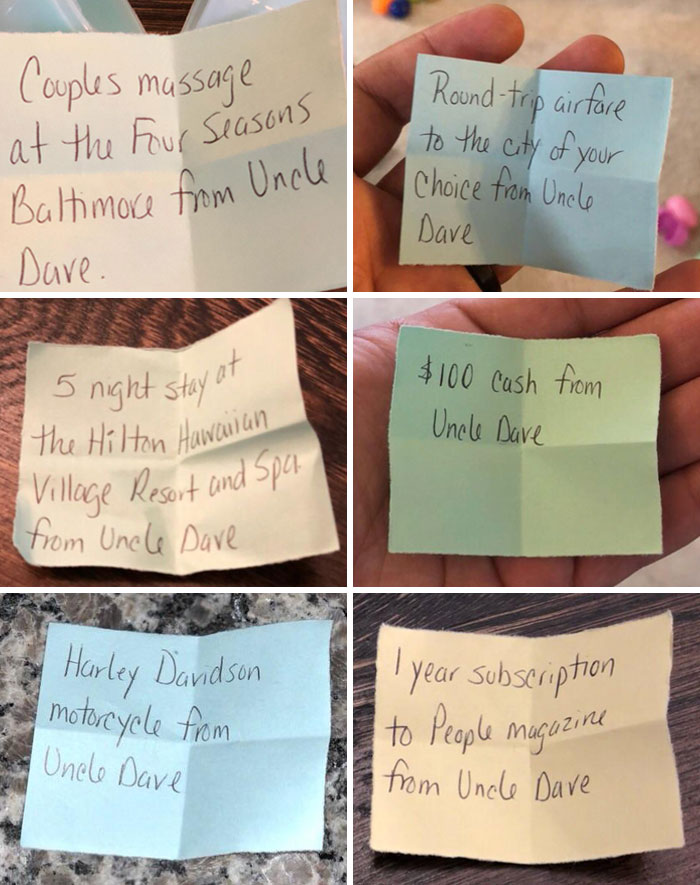 Couples massage
at the Four Seasons
Baltimore from Uncle
Dave.
Round-trip airfare
to the city of your
Choice from Uncle
Dave
5 night stay at
the Hilton Hawaiian
Village Resort and Spa
from Uncle Dave
$100 cash from
Uncle Dave
Harley Davidson
motorcycle from
Uncle Dave
1 year subscription
to People magazine
from Uncle Dave